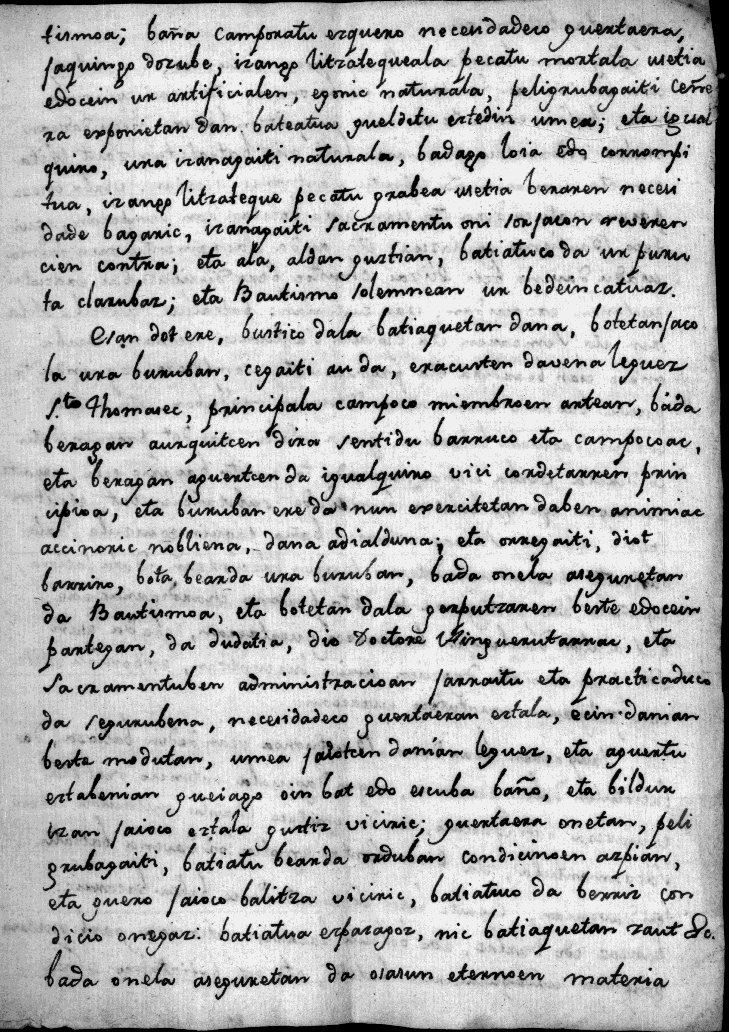 tismoa; baña camporatu ezquero necesidadeco guertaera,
jaquingo dozube, izango litzatequeala pecatu mortala usetia
edocein ur artificialen, egonic naturala, peligrubagaiti ceñe
ra exponietan dan bateatua gueldetu eztedin umea; eta igual
quiro, ura izanagaiti naturala, badago loia edo corrompi
tua, izango litzateque pecatu grabea usetia beraren necesi
dade bagaric, izanagaiti sacramentu oni jorjacon reveren
cien contra; eta ala, aldan guztian, batiatuco da ur puru
ta clarubaz; eta Bautismo solemnean ur bedeincatuaz.
Esan dot ere, bustico dala batiaquetan dana, botetanjaco
la ura buruban, cegaiti au da, eracusten davena leguez
S.to Thomasec, principala campoco miembroen artean, bada
beragan aurquitcen dira sentidu barruco eta campocoac,
eta beragan aguertcen da igualquiro vici cordetarren prin
cipioa, eta buruban ere da nun exercitetan daben animiac
accinoric nobliena, dana adialduna; eta orregaiti, diot
barriro, bota bearda ura buruban, bada onela aseguretan
da Bautismoa, eta botetan dala gorputzaren beste edocein
partegan, da dudatia, dio Doctore Ainguerutarrac, eta
Sacramentuben administracioan jarraitu eta practicaduco
da segurubena, necesidadeco guertaeran eztala, ecin danian
beste modutan, umea jaiotcen danían leguez, eta aguertu
eztabenian gueiago oin bat edo escuba baño, eta bildur
izan jaioco eztala guztiz viciric; guertaera onetan, peli
grubagaiti, batiatu bearda orduban condicinoen azpian,
eta guero jaioco balitza viciric, batiatuco da berriz con
dicio onegaz: batiatua ezpazagoz, nic batiaquetan zaut &c.
bada onela aseguretan da osasun eternoen materia